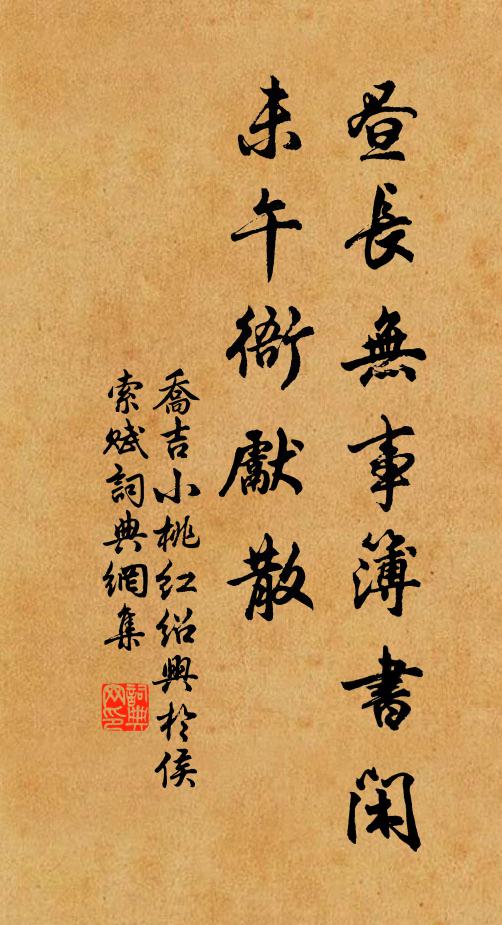 昼長無事簿書閑
未午衙獻散
喬吉小桃紅紹興於侯
索賦詞典網集
詞典
网印